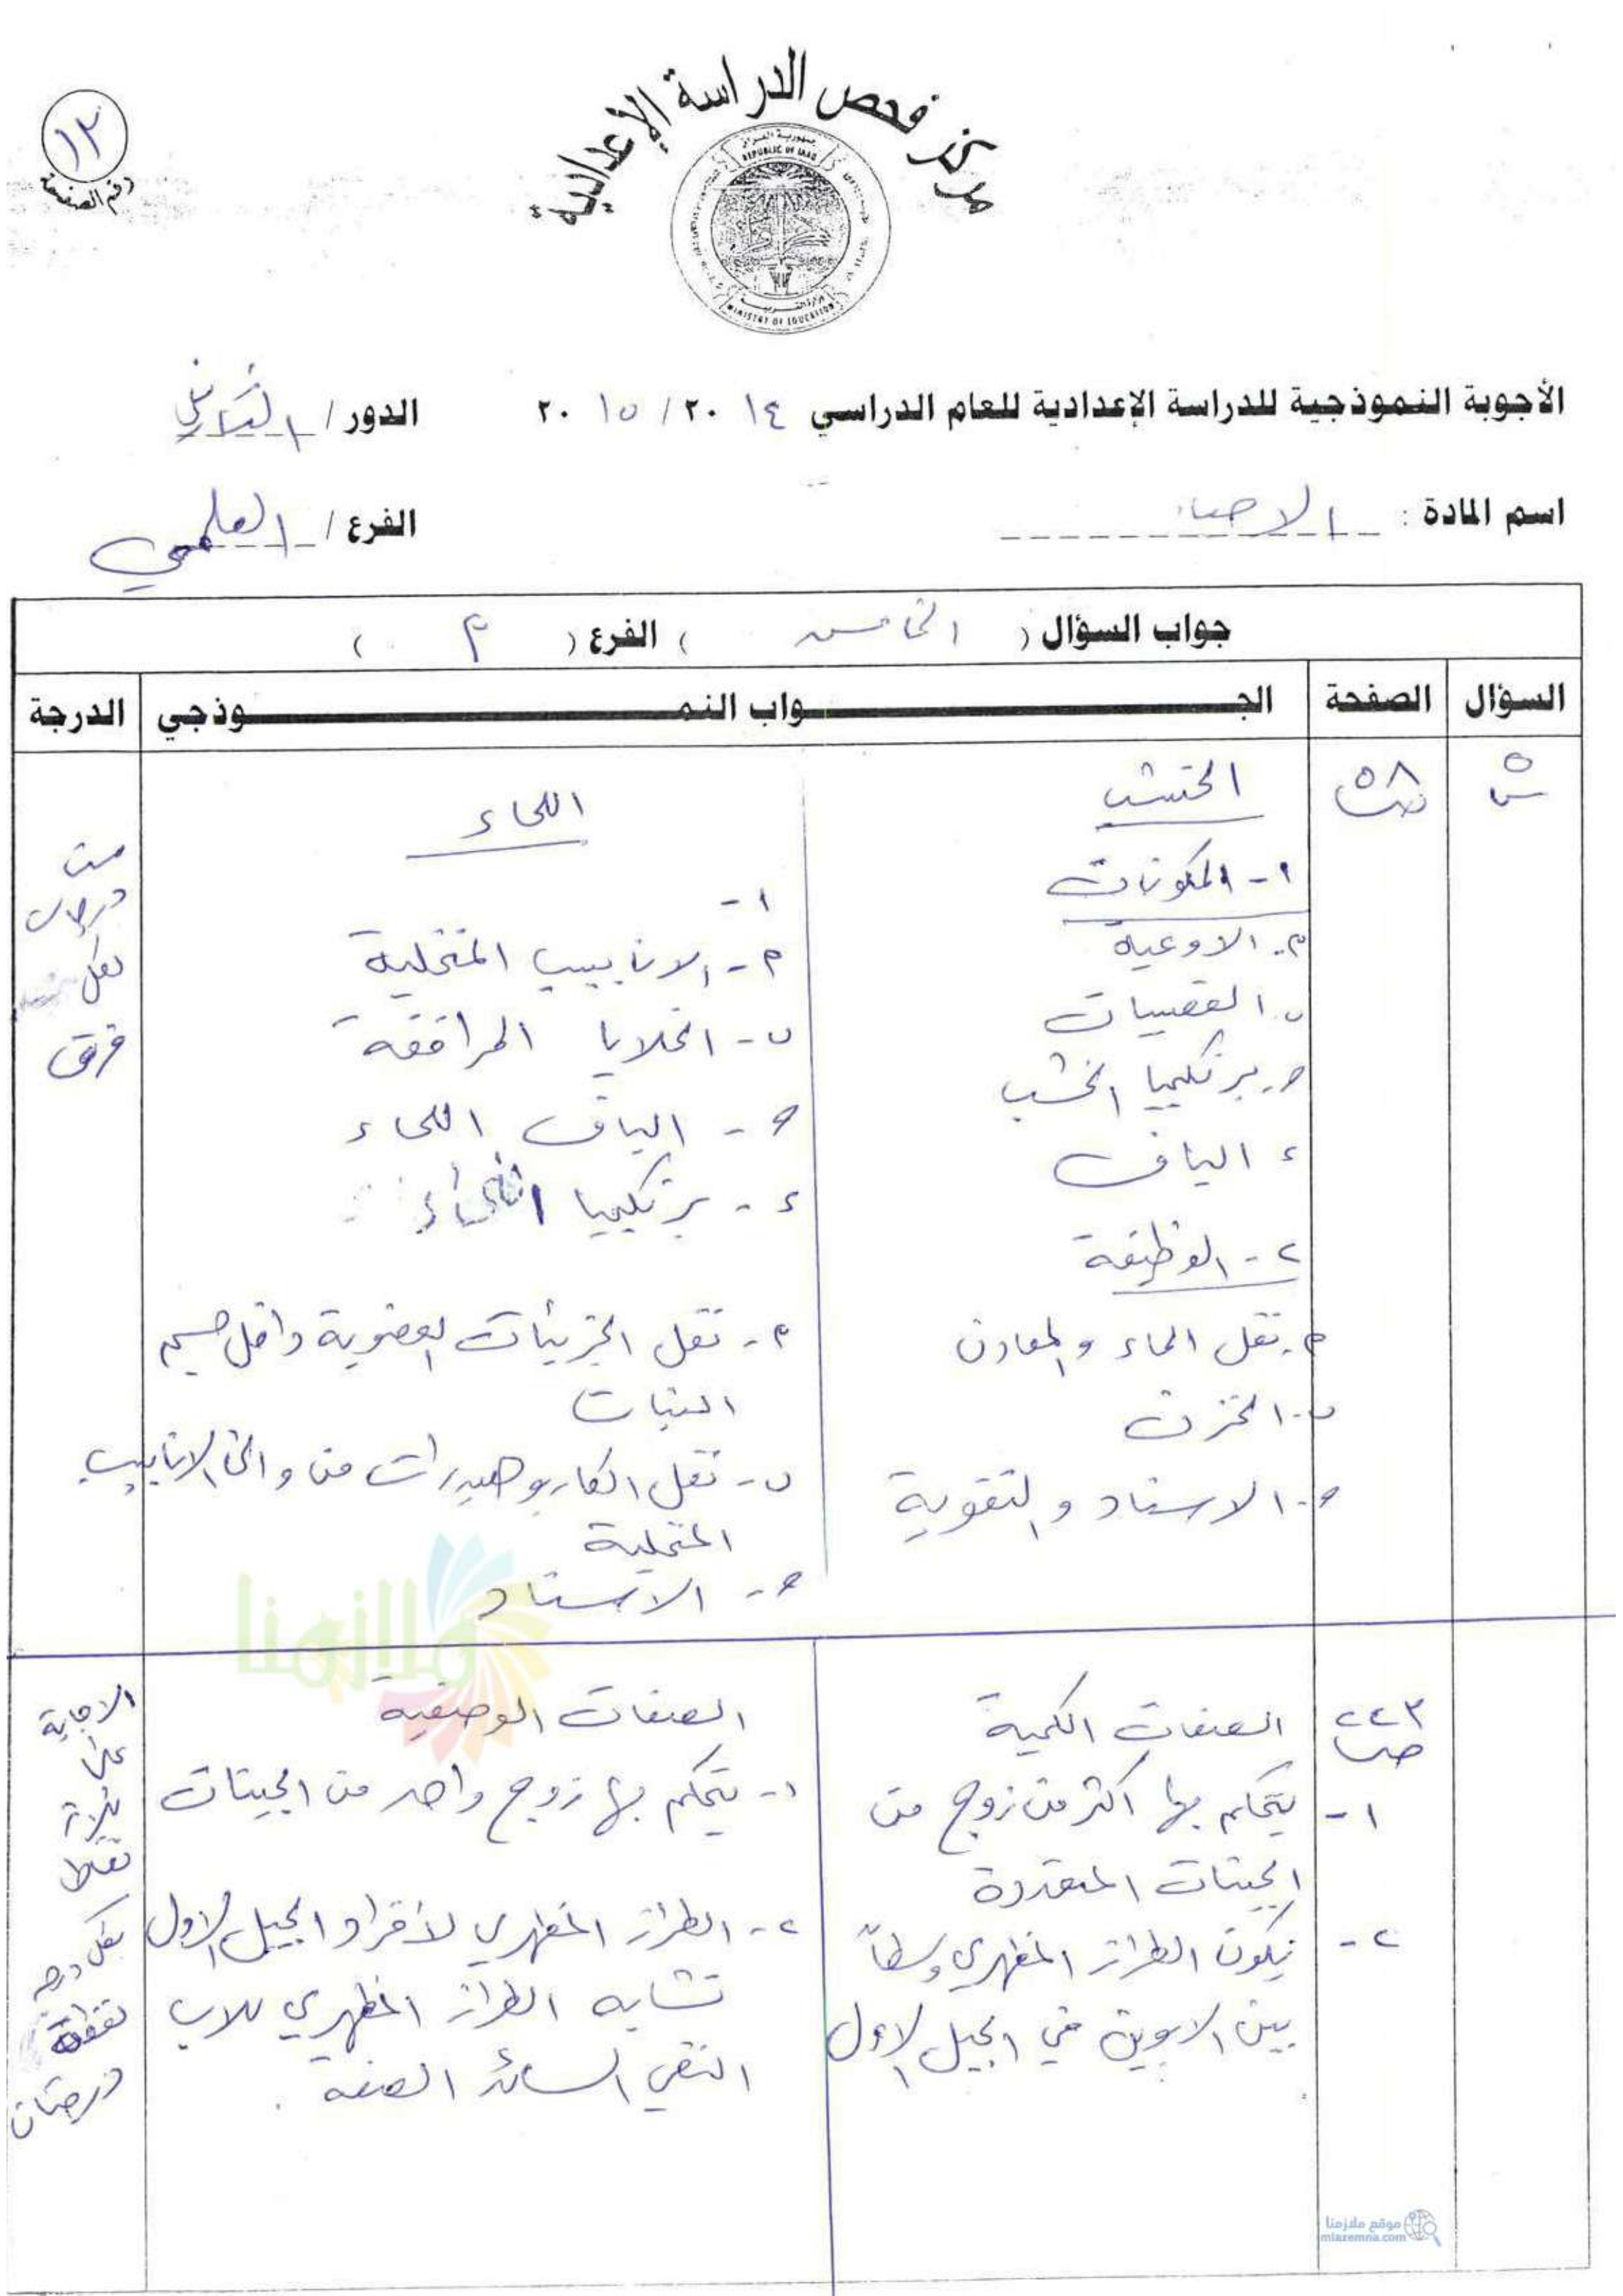 مركز فحص الدراسة الإعدادية
جمهورية العراق
REPUBLIC OF IRAQ
وزارة التربية
MINISTRY OF EDUCATION
١٣
رقم الصفحة
الأجوبة النموذجية للدراسة الإعدادية للعام الدراسي ٢٠١٤ / ٢٠١٥ الدور / الثاني
اسم المادة : الاحياء الفرع / العلمي
جواب السؤال ( الخامس ) الفرع ( م )
السؤال الصفحة الجـواب النمـوذجي الدرجة
س٥ ص٥٨
الخشب
١- المكونات
م. الاوعية
ب. القصيبات
ح. برنكيميا الخشب
ء الياف
٢- الوظيفة
م. نقل الماء والمعادن
ب. الخزن
ح. الاسناد والتقوية
اللحاء
١-
م- الانابيب المنخلية
ب- الخلايا المرافقة
ح- الياف اللحاء
ء- برنكيميا اللحاء
م- نقل الجزيئات العضوية داخل جسم
النبات
ب- نقل الكاربوهيدرات من والى الانابيب
المنخلية
ح- الاسناد
درجات
لكل
فرق
ملازمنا
ص٢٤٣
الصفات الكمية
١- يتحكم بها اكثر من زوج من
الجينات المتعددة
٢- يكون الطراز المظهري وسطاً
بين الابوين في الجيل الاول
الصفات الوصفية
١- يتحكم بها زوج واحد من الجينات
٢- الطراز المظهري لأفراد الجيل الاول
تشابه الطراز المظهري للاب
النقي السائد الصفة .
الاجابة
على
ثلاث
نقاط
لكل
نقطة
درجتان
موقع ملازمنا
mlazemna.com